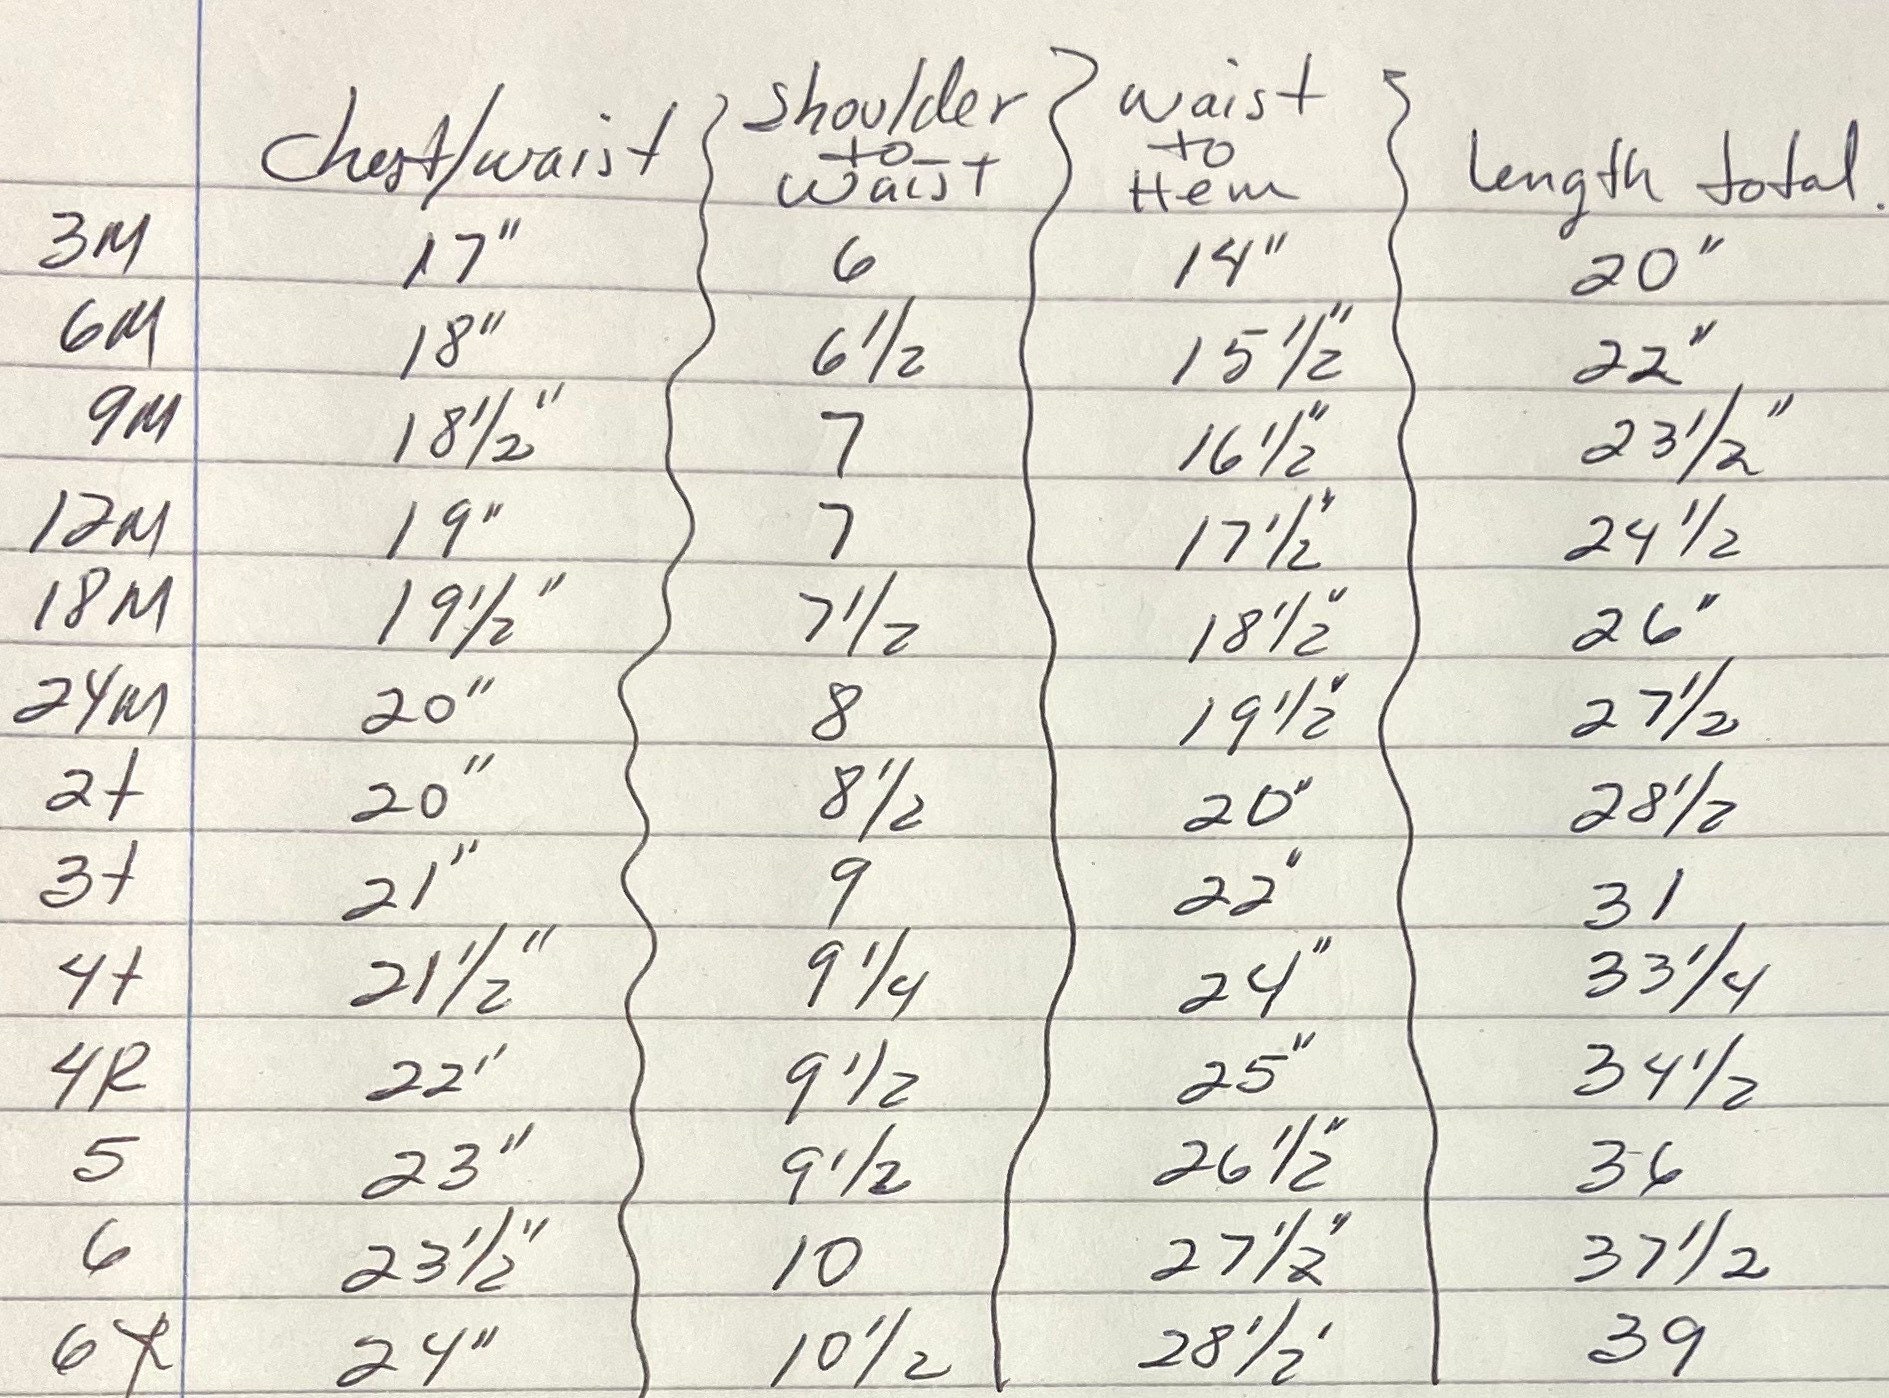 chest/waist shoulder to waist waist to Hem Length total.
3M 17" 6 14" 20"
6M 18" 6 1/2 15 1/2" 22"
9M 18 1/2" 7 16 1/2" 23 1/2"
12M 19" 7 17 1/2" 24 1/2
18M 19 1/2" 7 1/2 18 1/2" 26"
24M 20" 8 19 1/2" 27 1/2
2t 20" 8 1/2 20" 28 1/2
3t 21" 9 22" 31
4t 21 1/2" 9 1/4 24" 33 1/4
4R 22' 9 1/2 25" 34 1/2
5 23" 9 1/2 26 1/2" 36
6 23 1/2" 10 27 1/2" 37 1/2
6X 24" 10 1/2 28 1/2' 39